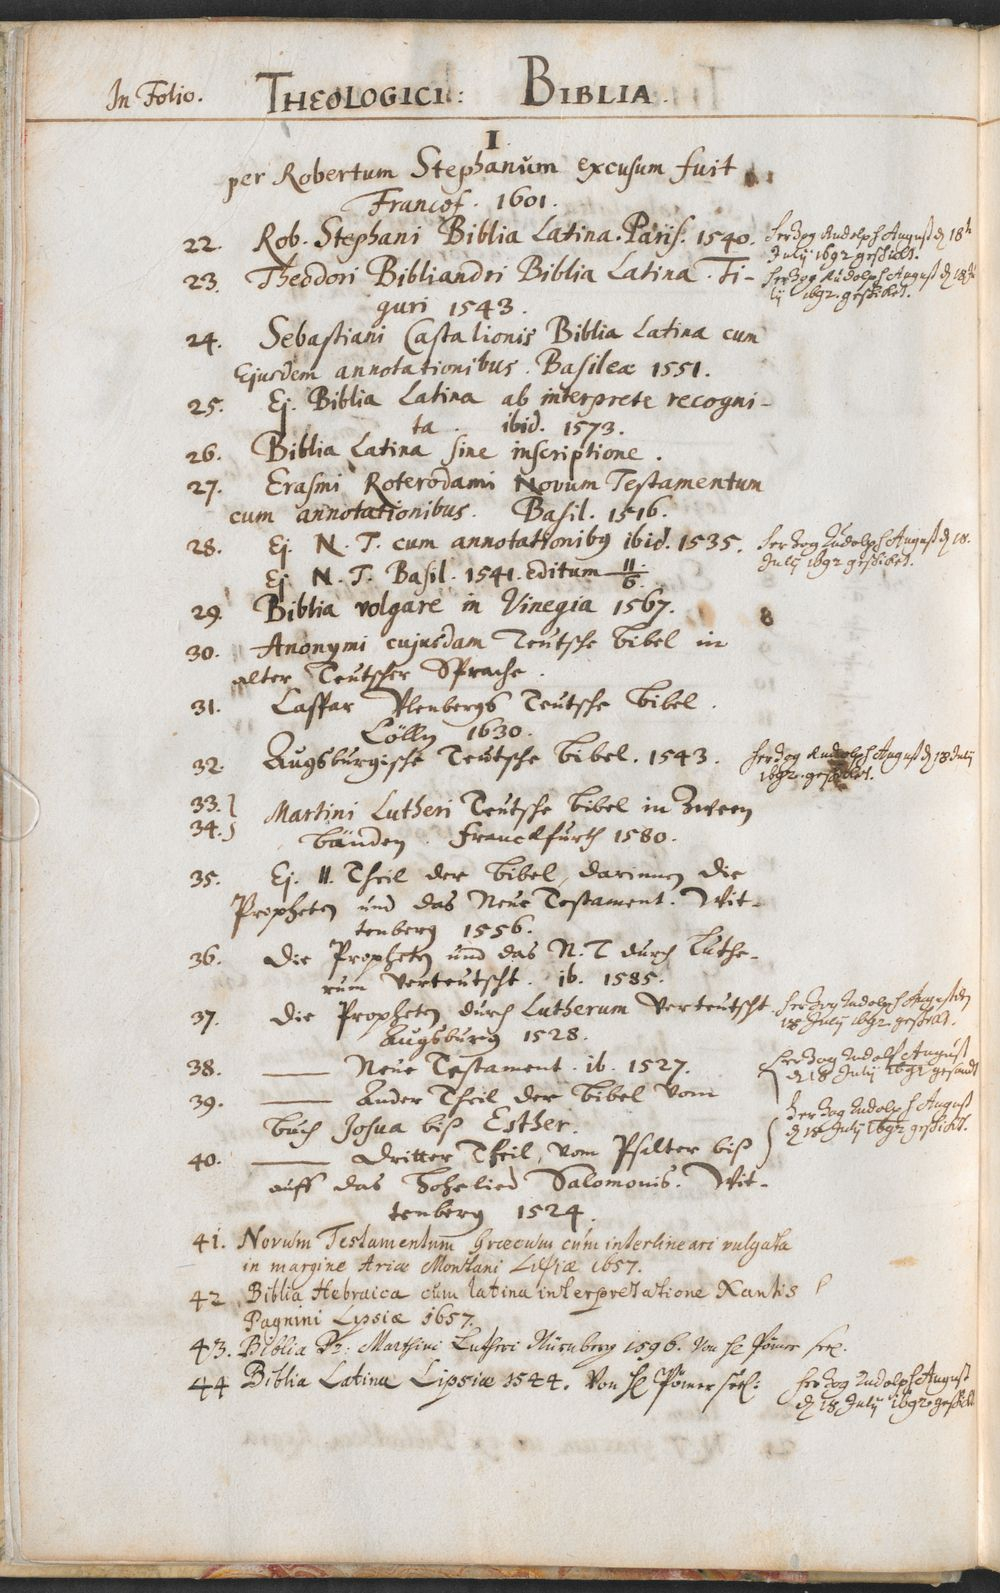 In Folio. THEOLOGICI: BIBLIA.
I
per Robertum Stephanum excusum fuit
Francof. 1601.
22. Rob. Stephani Biblia Latina. Paris. 1540. Herzog Rudolph August d 18t
July 1692 geschickt.
23. Theodori Bibliandri Biblia Latina. Ti- Herzog Rudolph August d 18 Ju
guri 1543. ly 1692. geschicket.
24. Sebastiani Castalionis Biblia Latina cum
Ejusdem annotationibus. Basileæ 1551.
25. Ej. Biblia Latina ab interprete recogni-
ta. ibid. 1573.
26. Biblia Latina sine inscriptione.
27. Erasmi Roterodami Novum Testamentum
cum annotationibus. Basil. 1516.
28. Ej. N. T. cum annotationibus ibid. 1535. Herzog Rudolph August d 18.
July 1692 geschicket.
Ej N. T. Basil. 1541. editum 11/6.
29. Biblia volgare in Vinegia 1567. 8
30. Anonymi cujusdam Teutsche Bibel in
alter Teutscher Sprache.
31. Caspar Vlenbergs Teutsche Bibel.
Cölln 1630.
32. Augsburgische Teutsche Bibel. 1543. Herzog Rudolph August d 18 July
1692. geschicket.
33.
34. Martini Lutheri Teutsche Bibel in Zween
Bänden. Franckfurth 1580.
35. Ej. II. Theil der Bibel, darinnen die
Propheten und das Neue Testament. Wit-
tenberg 1556.
36. Die Propheten und das N. T durch Luthe-
rum verteutscht. ib. 1585.
37. Die Propheten durch Lutherum verteutscht Herzog Rudolph August den
Augsburg 1528. 18 July 1692. geschickt.
38. —— Neue Testament. ib. 1527. Herzog Rudolf August
d 18 July 1692 gesandt
39. —— Ander Theil der Bibel vom Herzog Rudolph August
Buch Josua biß Esther. d 18 July 1692 geschicket.
40. —— Dritter Theil, vom Psalter biß
auff das Hohelied Salomonis. Wit-
tenberg 1524.
41. Novum Testamentum Græcum cum interlineari vulgata
in margine Ariæ Montani Lipsiæ 1657.
42 Biblia Hebraica cum latina interpretatione Xantis
Pagnini Lypsiæ 1657.
43. Biblia Dr: Marthini Lutheri Nürnberg 1596. Von H Pömer seel.
44 Biblia Latina Lipsiæ 1544. Von H Pömer seel: Herzog Rudolph August
d 18 July 1692 geschickt